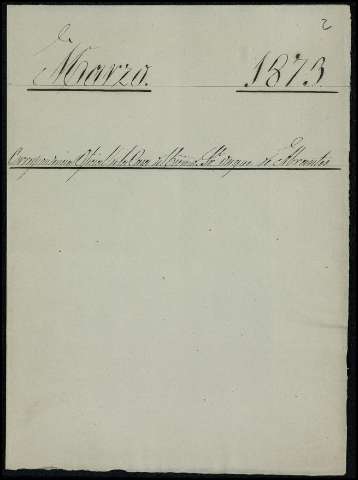 2
Marzo. 1873.
Correspondencia Oficial de la Casa del Excmo. Sr. Duque de Abrantes